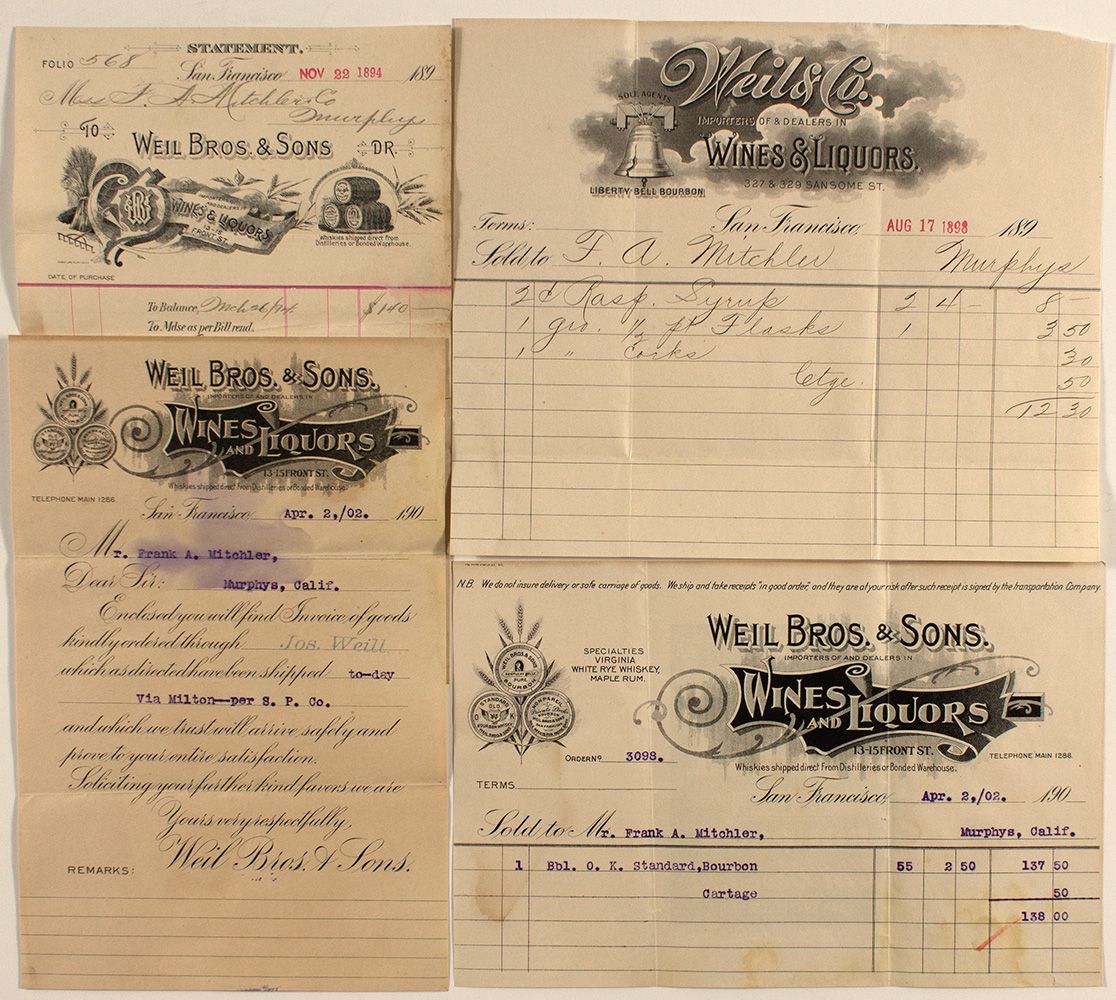 STATEMENT.
FOLIO 568
San Francisco NOV 22 1894 189
Mess F. A. Mitchler Co
Murphys
TO WEIL BROS. & SONS DR.
IMPORTERS OF AND DEALERS IN
WINES & LIQUORS
13-15
FRONT ST.
Whiskies shipped direct from
Distilleries or Bonded Warehouse.
DATE OF PURCHASE
To Balance, Mch 26/94 $140 —
To Mdse as per Bill rend.
Weil & Co.
SOLE AGENTS
IMPORTERS OF & DEALERS IN
WINES & LIQUORS.
327 & 329 SANSOME ST.
LIBERTY BELL BOURBON
Terms: San Francisco, AUG 17 1898 189
Sold to F. A. Mitchler Murphys
2 c Rasp. Syrup 2 4 — 8 —
1 gro. ½ pt Flasks 1 3 50
1 " Corks 30
Ctge. 50
12 30
WEIL BROS. & SONS.
IMPORTERS OF AND DEALERS IN
WINES AND LIQUORS
13-15 FRONT ST.
Whiskies shipped direct from Distilleries or Bonded Warehouse.
TELEPHONE MAIN 1286.
San Francisco Apr. 2,/02. 190
Mr. Frank A. Mitchler,
Dear Sir: Murphys, Calif.
Enclosed you will find Invoice of goods
kindly ordered through Jos. Weill
which as directed have been shipped to-day
Via Milton--per S. P. Co.
and which we trust will arrive safely and
prove to your entire satisfaction.
Soliciting your further kind favors we are
Yours very respectfully,
Weil Bros. & Sons.
REMARKS:
N.B. We do not insure delivery or safe carriage of goods. We ship and take receipts "in good order," and they are at your risk after such receipt is signed by the transportation Company.
WEIL BROS. & SONS.
IMPORTERS OF AND DEALERS IN
WINES AND LIQUORS
13-15 FRONT ST.
Whiskies shipped direct from Distilleries or Bonded Warehouse.
TELEPHONE MAIN 1286.
SPECIALTIES
VIRGINIA
WHITE RYE WHISKEY,
MAPLE RUM.
WEIL BROS & SONS
PURE
BOURBON
STANDARD
OLD
O K
BOURBON WHISKY
NONPAREIL
Private Stock
BOURBON
ORDER Nº 3098.
TERMS
San Francisco, Apr. 2,/02. 190
Sold to Mr. Frank A. Mitchler, Murphys, Calif.
1 Bbl. O. K. Standard,Bourbon 55 2 50 137 50
Cartage 50
138 00